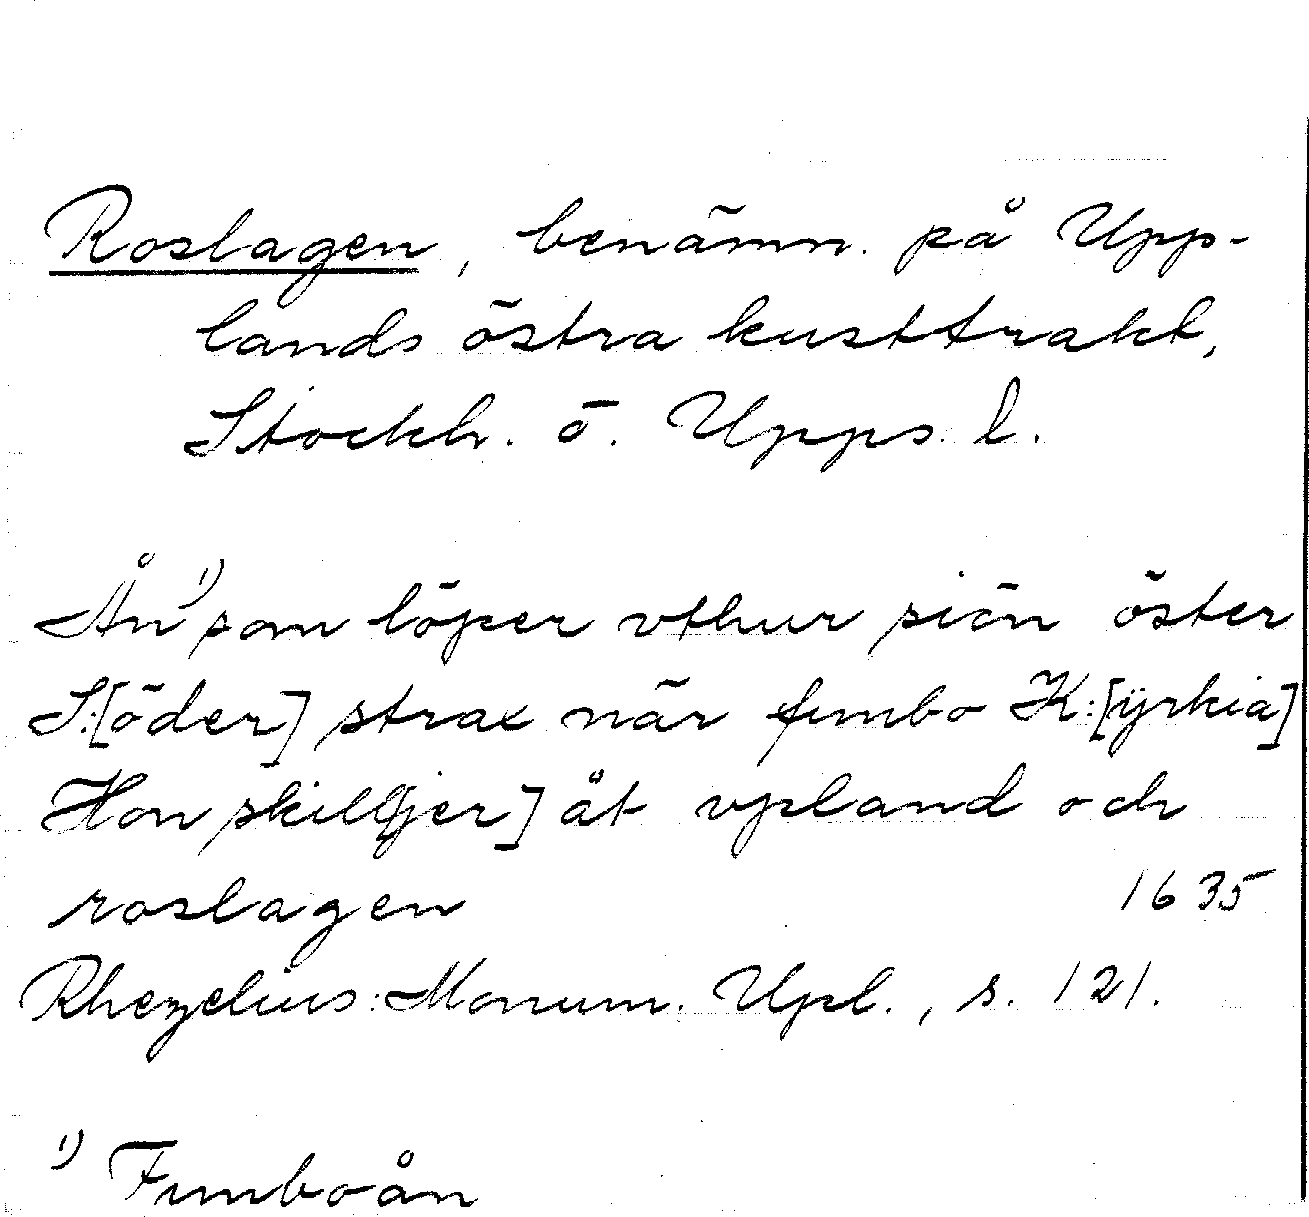 Roslagen, benämn. på Upp-
lands östra kusttrakt,
Stockh. o. Upps. l.
Ån¹⁾ som löper vthur siön öster
S:[öder] strax när funbo K:[ÿrkia]
Hon skill[jer] åt vpland och
roslagen 1635
Rhezelius: Monum. Upl., s. 121.
¹⁾ Funboån